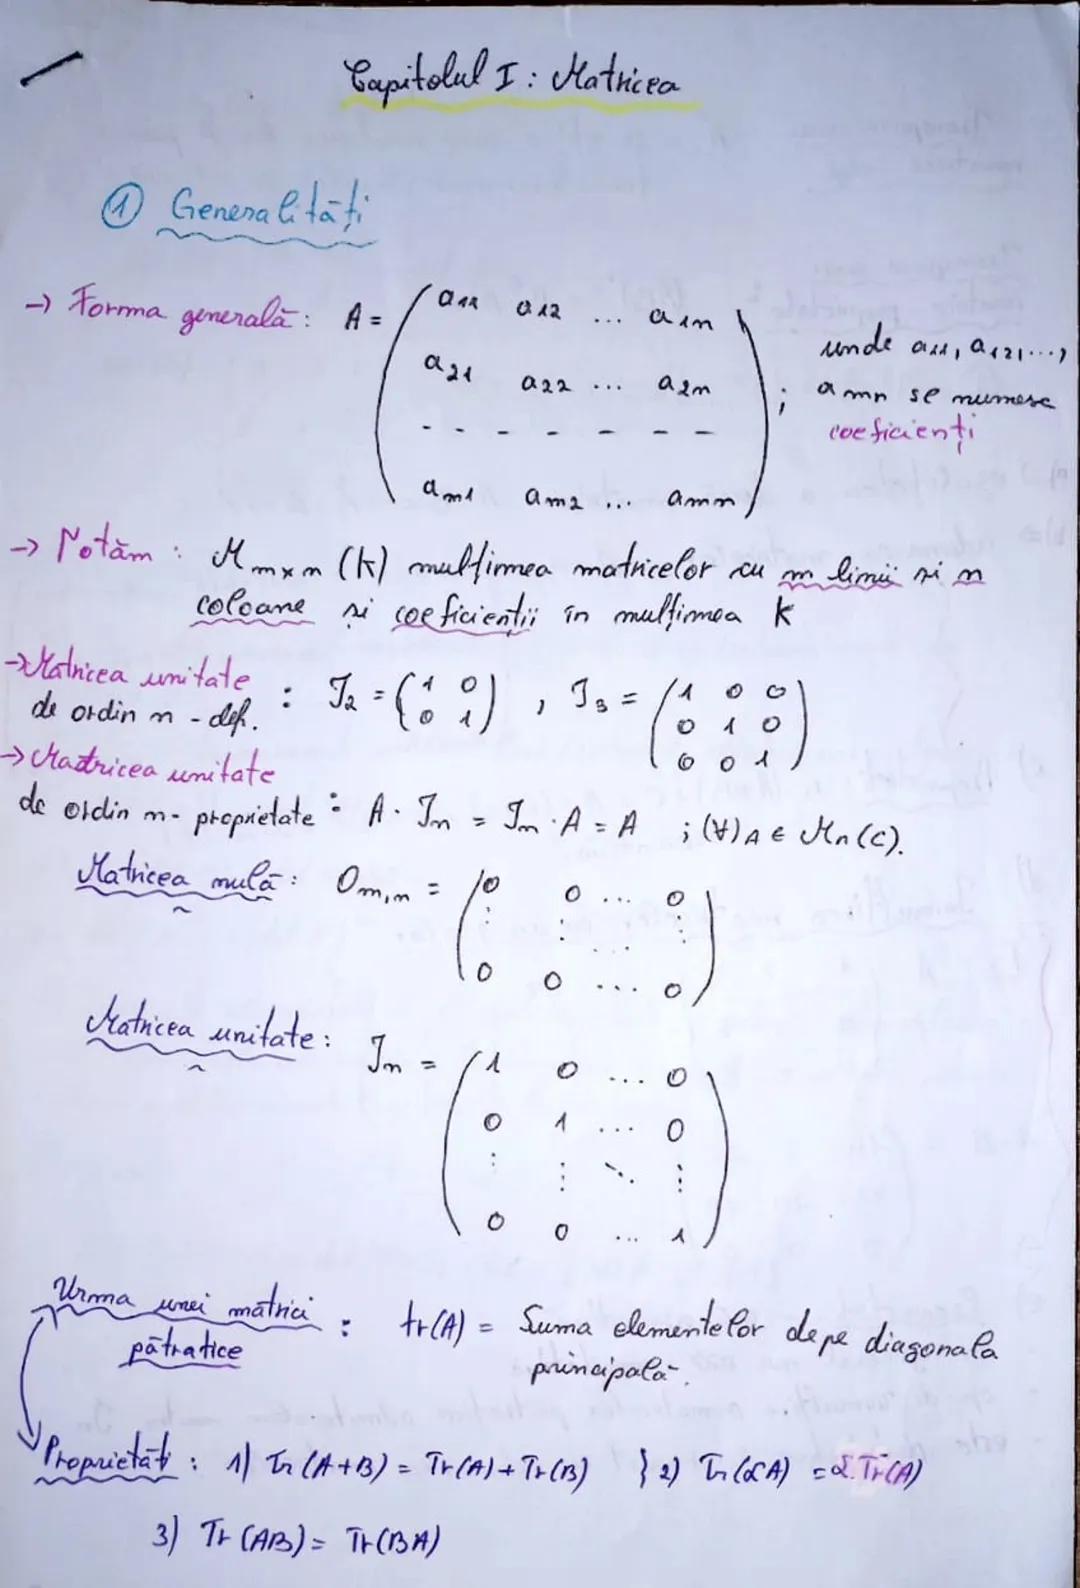 Capitolul I : Matricea
① Generalităţi
→ Forma generală : A = ( a11 a12 ... a1n ; unde a11, a12, ...,
a21 a22 ... a2n amn se numesc
- - - - - - - coeficienţi
am1 am2 ... amn )
→ Notăm : Mm×n (K) mulţimea matricelor cu m linii si n
coloane si coeficienţii în mulţimea K
→ Matricea unitate : I2 = ( 1 0 0 1 ) , I3 = ( 1 0 0
de ordin n - def. 0 1 0
0 0 1 )
→ Matricea unitate
de ordin n - proprietate : A · In = In · A = A ; (∀) A ∈ Mn(C).
Matricea nulă : Om,n = ( 0 0 ... 0
⋮ ⋮ ... ⋮
0 0 ... 0 )
Matricea unitate : In = ( 1 0 ... 0
0 1 ... 0
⋮ ⋮ ⋱ ⋮
0 0 ... 1 )
Urma unei matrici : tr(A) = Suma elementelor de pe diagonala
pătratice principală.
Proprietăţi : 1) Tr (A+B) = Tr(A) + Tr(B) } 2) Tr (αA) = α.Tr(A)
3) Tr (AB) = Tr(BA)